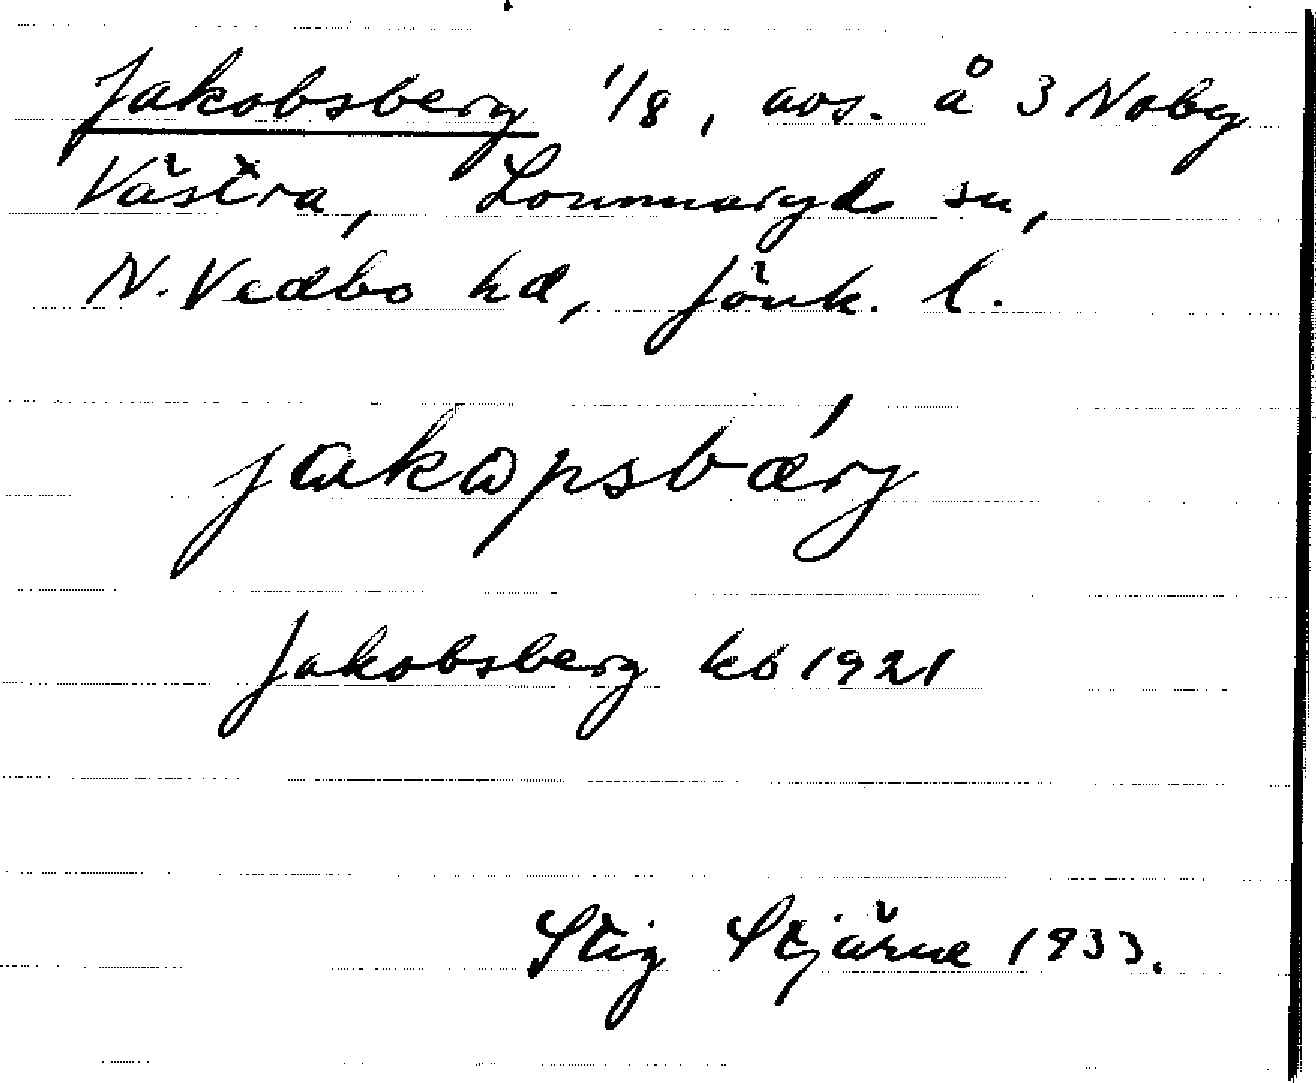 Jakobsberg 1/8, avs. å 3 Noby
Västra, Lommaryds sn,
N. Vedbo hd, Jönk. l.
jakapsbærj
Jakobsberg kb 1921
Stig Stjärne 1933.